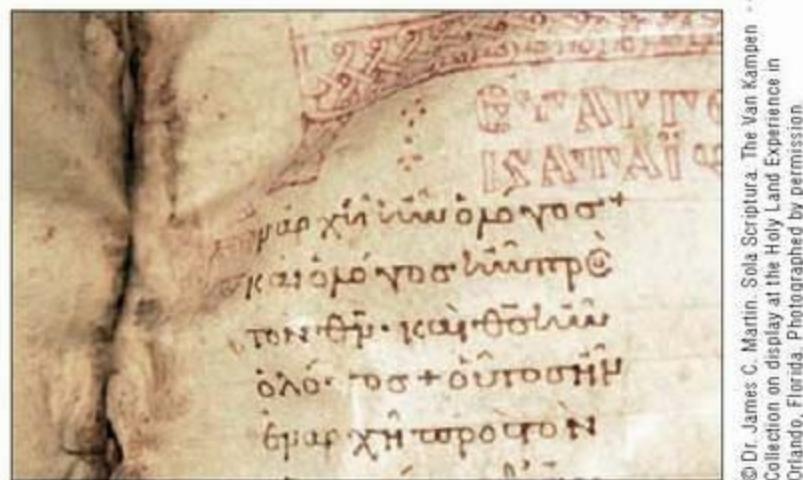 ΕΥΑΓΓΕ
ΚΑΤΑ ΪΩ
ἐν ἀρχῆ ἦν ὁ λόγος +
καὶ ὁ λόγος ἦν πρὸς
τὸν θν̄· καὶ θς̄ ἦν
ὁ λόγος + οὗτος ἦν
ἐν ἀρχῆ πρὸς τὸν
© Dr. James C. Martin. Sola Scriptura. The Van Kampen
Collection on display at the Holy Land Experience in
Orlando, Florida. Photographed by permission